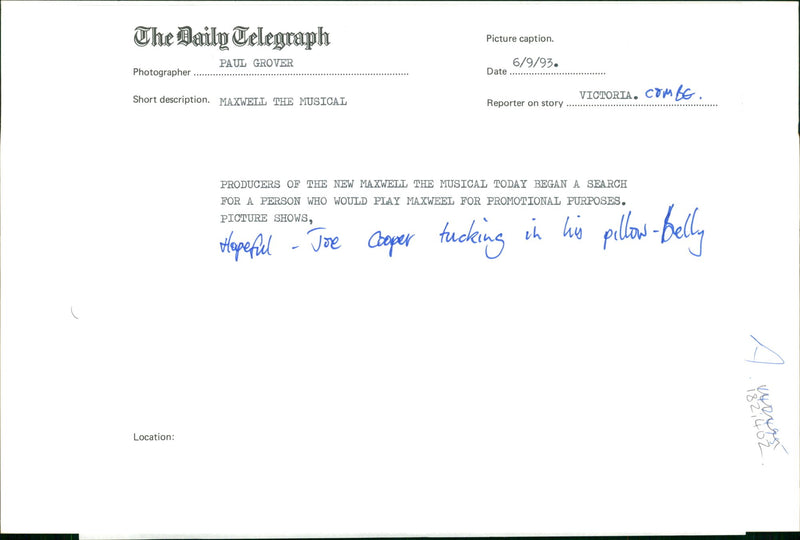 The Daily Telegraph
Picture caption.
Photographer PAUL GROVER
Date 6/9/93.
Short description. MAXWELL THE MUSICAL
Reporter on story VICTORIA. COMBE.
PRODUCERS OF THE NEW MAXWELL THE MUSICAL TODAY BEGAN A SEARCH
FOR A PERSON WHO WOULD PLAY MAXWEEL FOR PROMOTIONAL PURPOSES.
PICTURE SHOWS,
Hopeful - Joe Cooper tucking in his pillow-Belly
Location:
A.
182,402